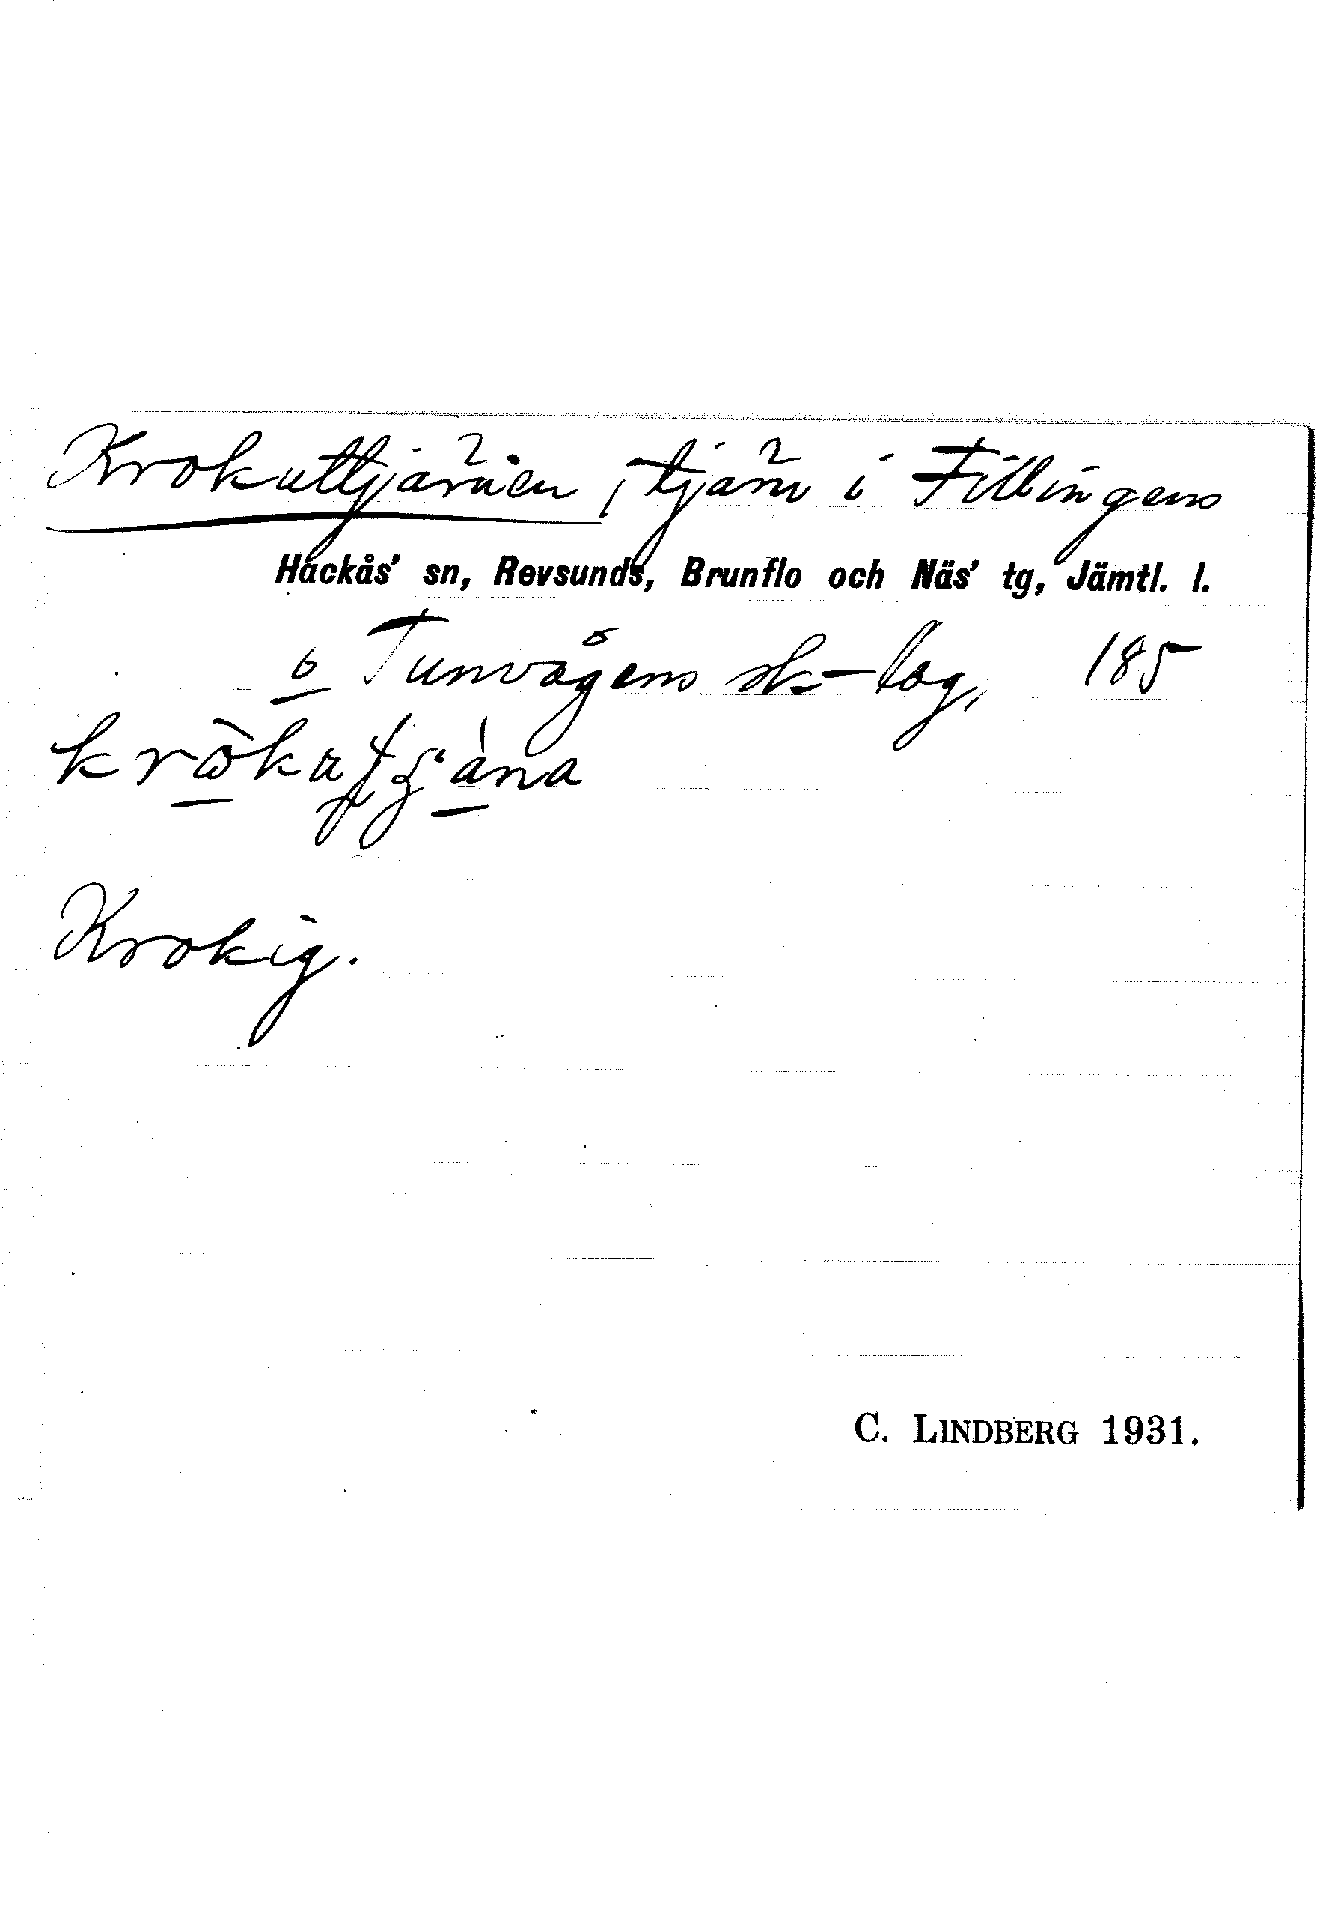 Krokuttjärnen, tjärn i Fillingens
Hackås' sn, Revsunds, Brunflo och Näs' tg, Jämtl. l.
o Tunvågens sk-lag, 185
Krokig.
C. LINDBERG 1931.